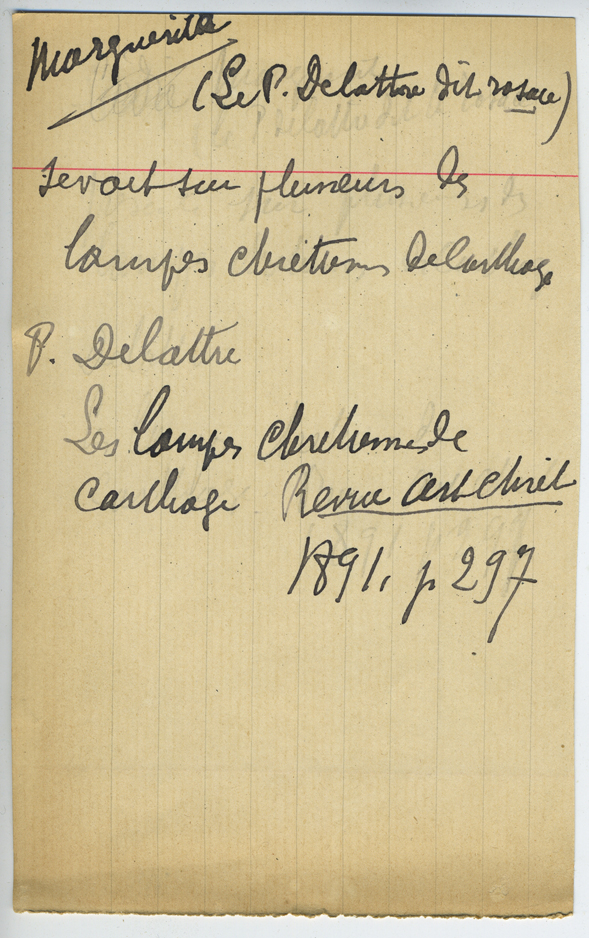 Marguerite
(Le P. Delattre dit rosace)
se voit sur plusieurs des
lampes chrétiennes de Carthage
P. Delattre
Les lampes chretiennes de
Carthage Revue Art Chrét
1891, p 297